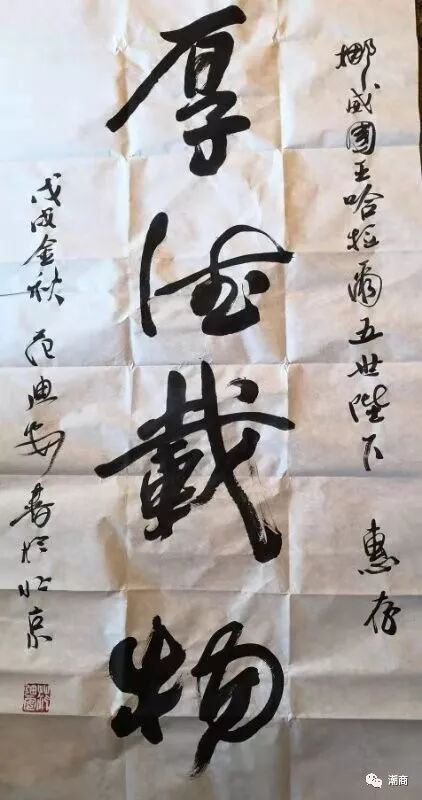 挪威国王哈拉尔五世陛下 惠存
厚德载物
戊戌金秋 范迪安书于北京
潮商